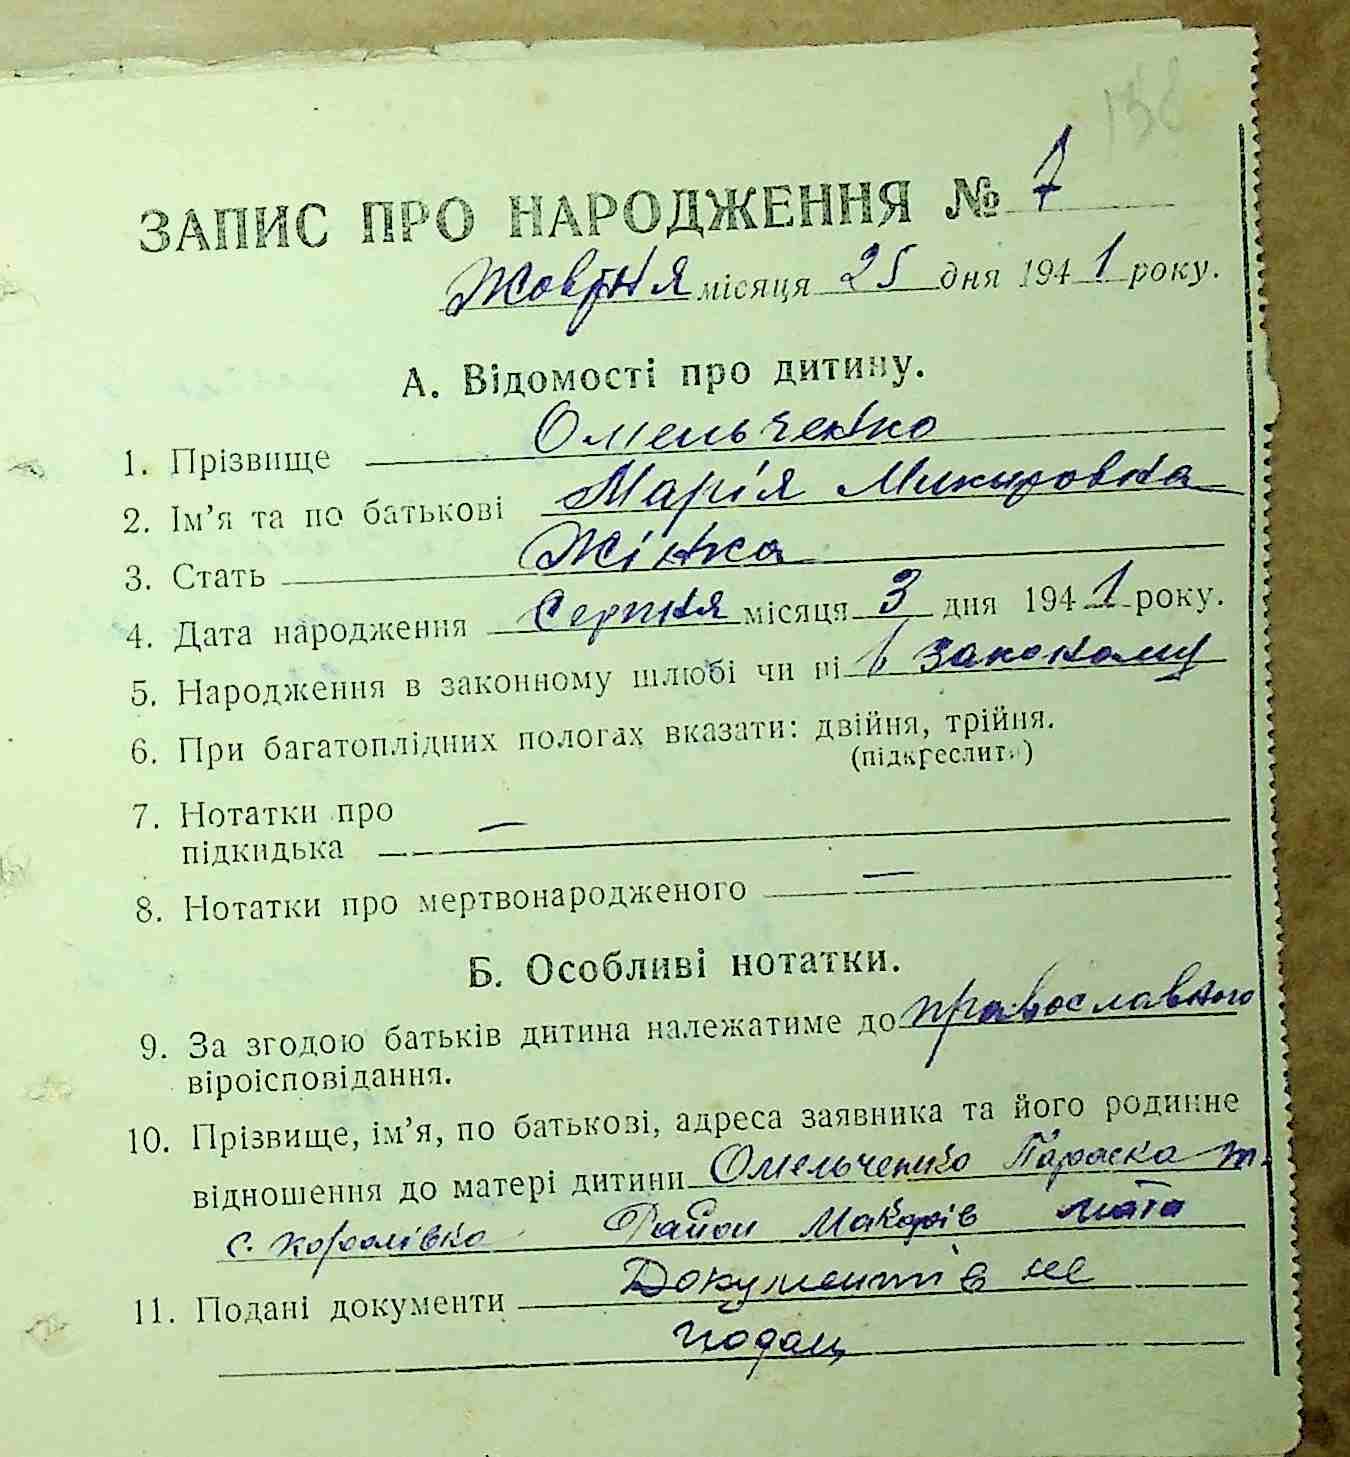 158
ЗАПИС ПРО НАРОДЖЕННЯ № 7
Жовтня місяця 25 дня 1941 року.
А. Відомості про дитину.
1. Прізвище Омельченко
2. Ім’я та по батькові Марія Микировна
3. Стать Жінка
4. Дата народження Серпня місяця 3 дня 1941 року.
5. Народження в законному шлюбі чи ні в законому
6. При багатоплідних пологах вказати: двійня, трійня.
(підкреслити)
7. Нотатки про
підкидька —
8. Нотатки про мертвонародженого —
Б. Особливі нотатки.
9. За згодою батьків дитина належатиме до православного
віроісповідання.
10. Прізвище, ім’я, по батькові, адреса заявника та його родинне
відношення до матері дитини Омельченко Параска т.
с. Королівка Район Макарів мати
11. Подані документи Документів не
подац